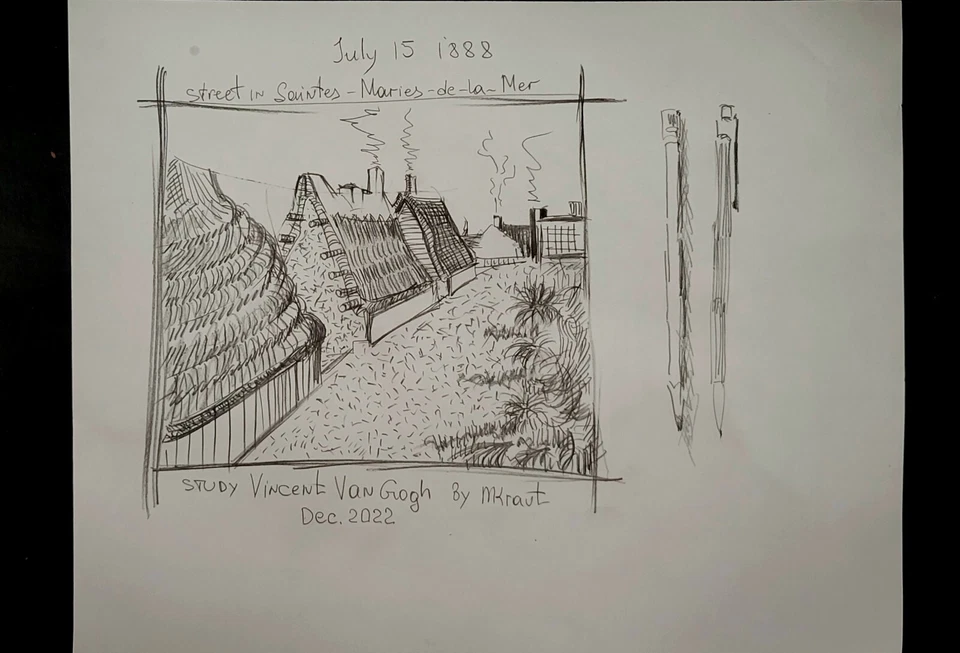 July 15 1888
Street in Saintes-Maries-de-la-Mer
STUDY Vincent Van Gogh By MKraut
Dec. 2022